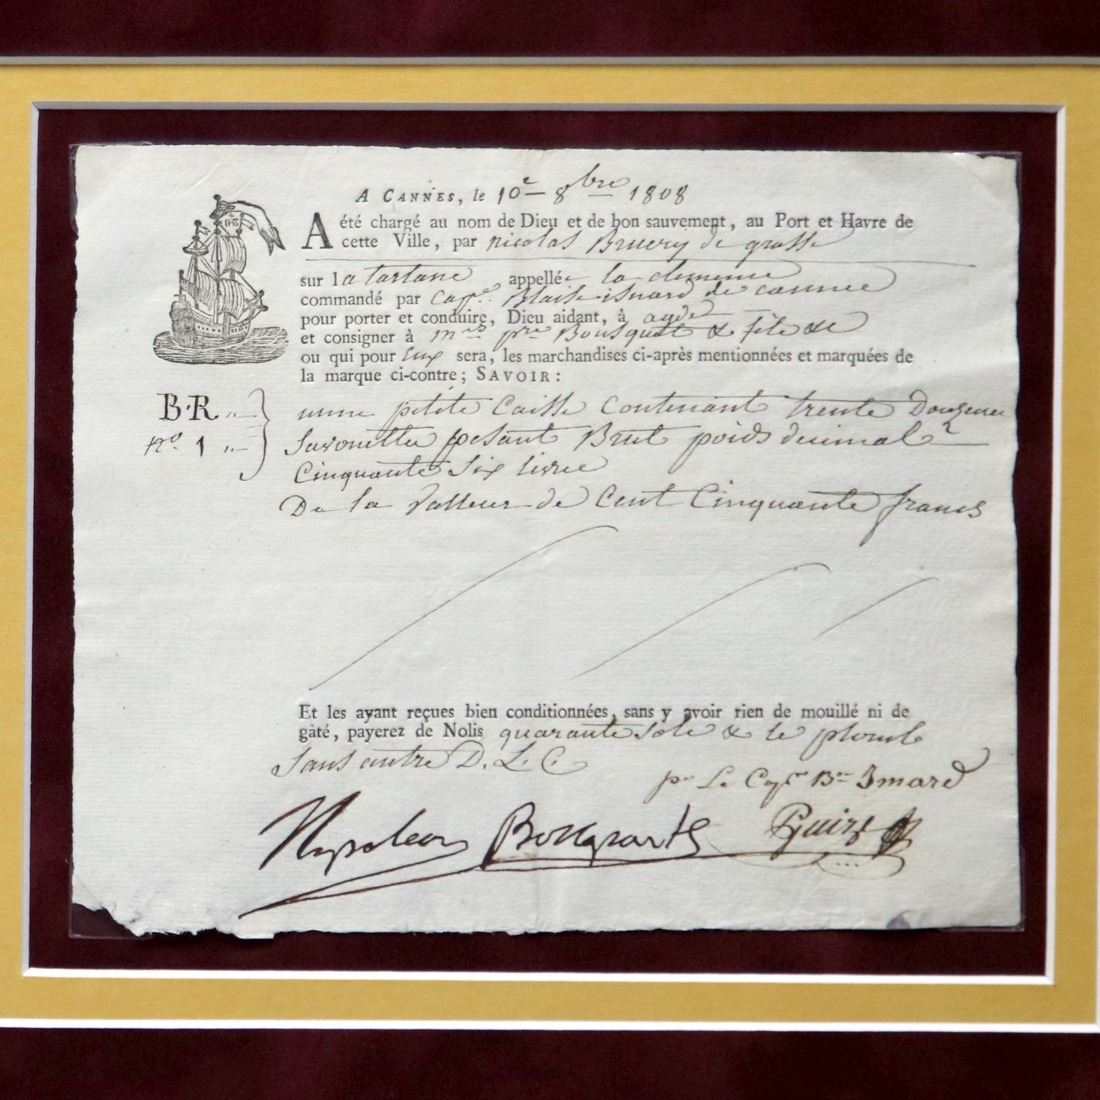 A CANNES, le 10e 8bre 1808
A été chargé au nom de Dieu et de bon sauvement, au Port et Havre de
cette Ville, par nicolas Bruery de grasse
sur la tartane appellée la clemence
commandé par Cap.ne Blaise isnard de cannes
pour porter et conduire, Dieu aidant, à agde
et consigner à mrs pre Bousquet & fils
ou qui pour eux sera, les marchandises ci-après mentionnées et marquées de
la marque ci-contre; SAVOIR:
B.R unne petite Caisse Contenant trente Douzenes
no. 1 Savonettes pesant Brut poids decimal
Cinquante Six livres
De la Valleur de Cent Cinquante francs
Et les ayant reçues bien conditionnées, sans y avoir rien de mouillé ni de
gâté, payerez de Nolis quarante sols & le plomb
Sans autre D. L. C.
pr Le Cape Bse Isnard
Napoleon Bonaparte